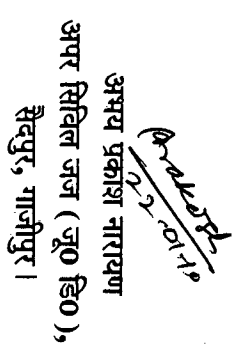 Prakash
22-01-10
अभय प्रकाश नारायण
अपर सिविल जज (जू० डि०),
सैदपुर, गाजीपुर।